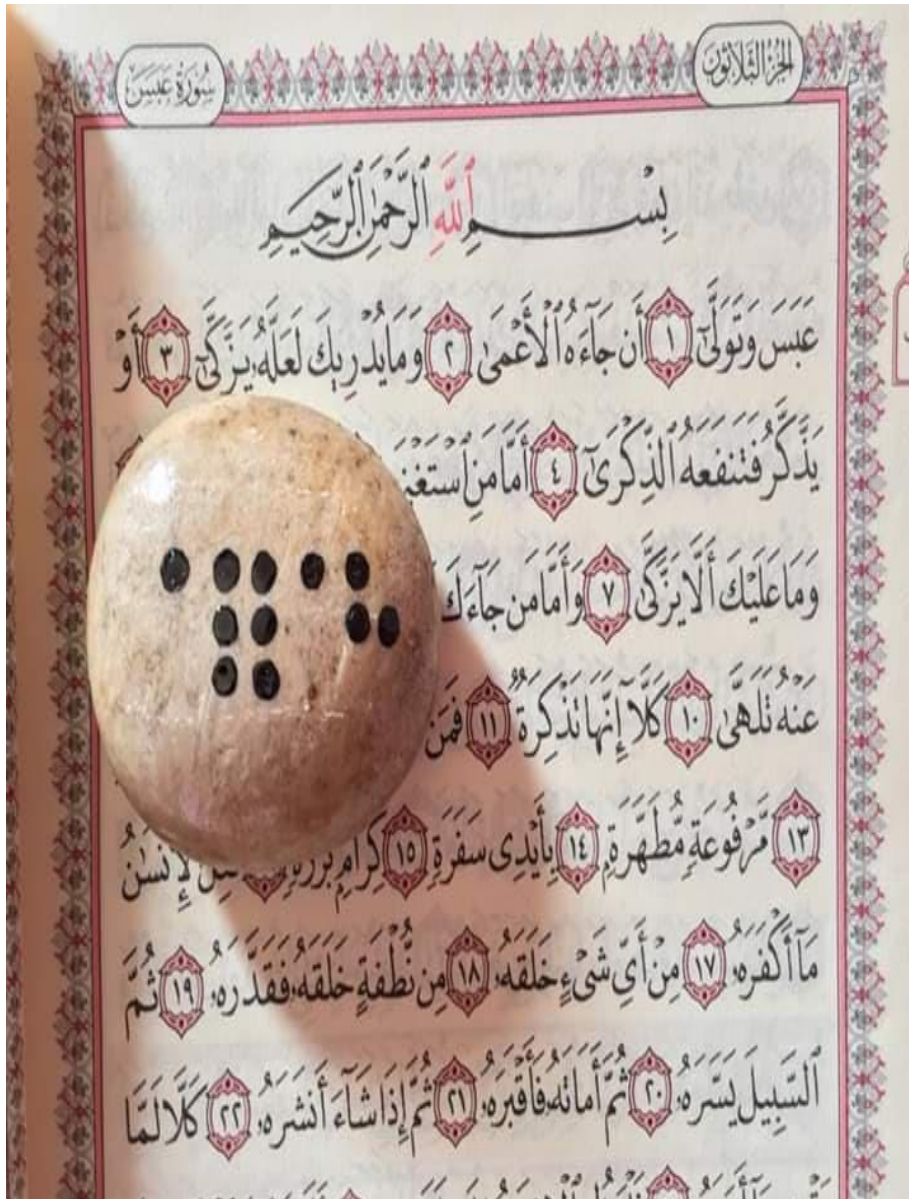 الجزء الثلاثون
سورة عبس
بِسْمِ ٱللَّهِ ٱلرَّحْمَٰنِ ٱلرَّحِيمِ
عَبَسَ وَتَوَلَّىٰٓ ١ أَن جَآءَهُ ٱلْأَعْمَىٰ ٢ وَمَا يُدْرِيكَ لَعَلَّهُۥ يَزَّكَّىٰٓ ٣ أَوْ
يَذَّكَّرُ فَتَنفَعَهُ ٱلذِّكْرَىٰٓ ٤ أَمَّا مَنِ
وَمَا عَلَيْكَ أَلَّا يَزَّكَّىٰ ٧ وَأَمَّا مَن جَآءَكَ
عَنْهُ تَلَهَّىٰ ١٠ كَلَّآ إِنَّهَا تَذْكِرَةٌ ١١ فَمَن
١٣ مَّرْفُوعَةٍ مُّطَهَّرَةٍۭ ١٤ بِأَيْدِى سَفَرَةٍ ١٥ كِرَامٍۭ بَرَرَةٍ ٱلْإِنسَٰنُ
مَآ أَكْفَرَهُۥ ١٧ مِنْ أَىِّ شَىْءٍ خَلَقَهُۥ ١٨ مِن نُّطْفَةٍ خَلَقَهُۥ فَقَدَّرَهُۥ ١٩ ثُمَّ
ٱلسَّبِيلَ يَسَّرَهُۥ ٢٠ ثُمَّ أَمَاتَهُۥ فَأَقْبَرَهُۥ ٢١ ثُمَّ إِذَا شَآءَ أَنشَرَهُۥ ٢٢ كَلَّا لَمَّا